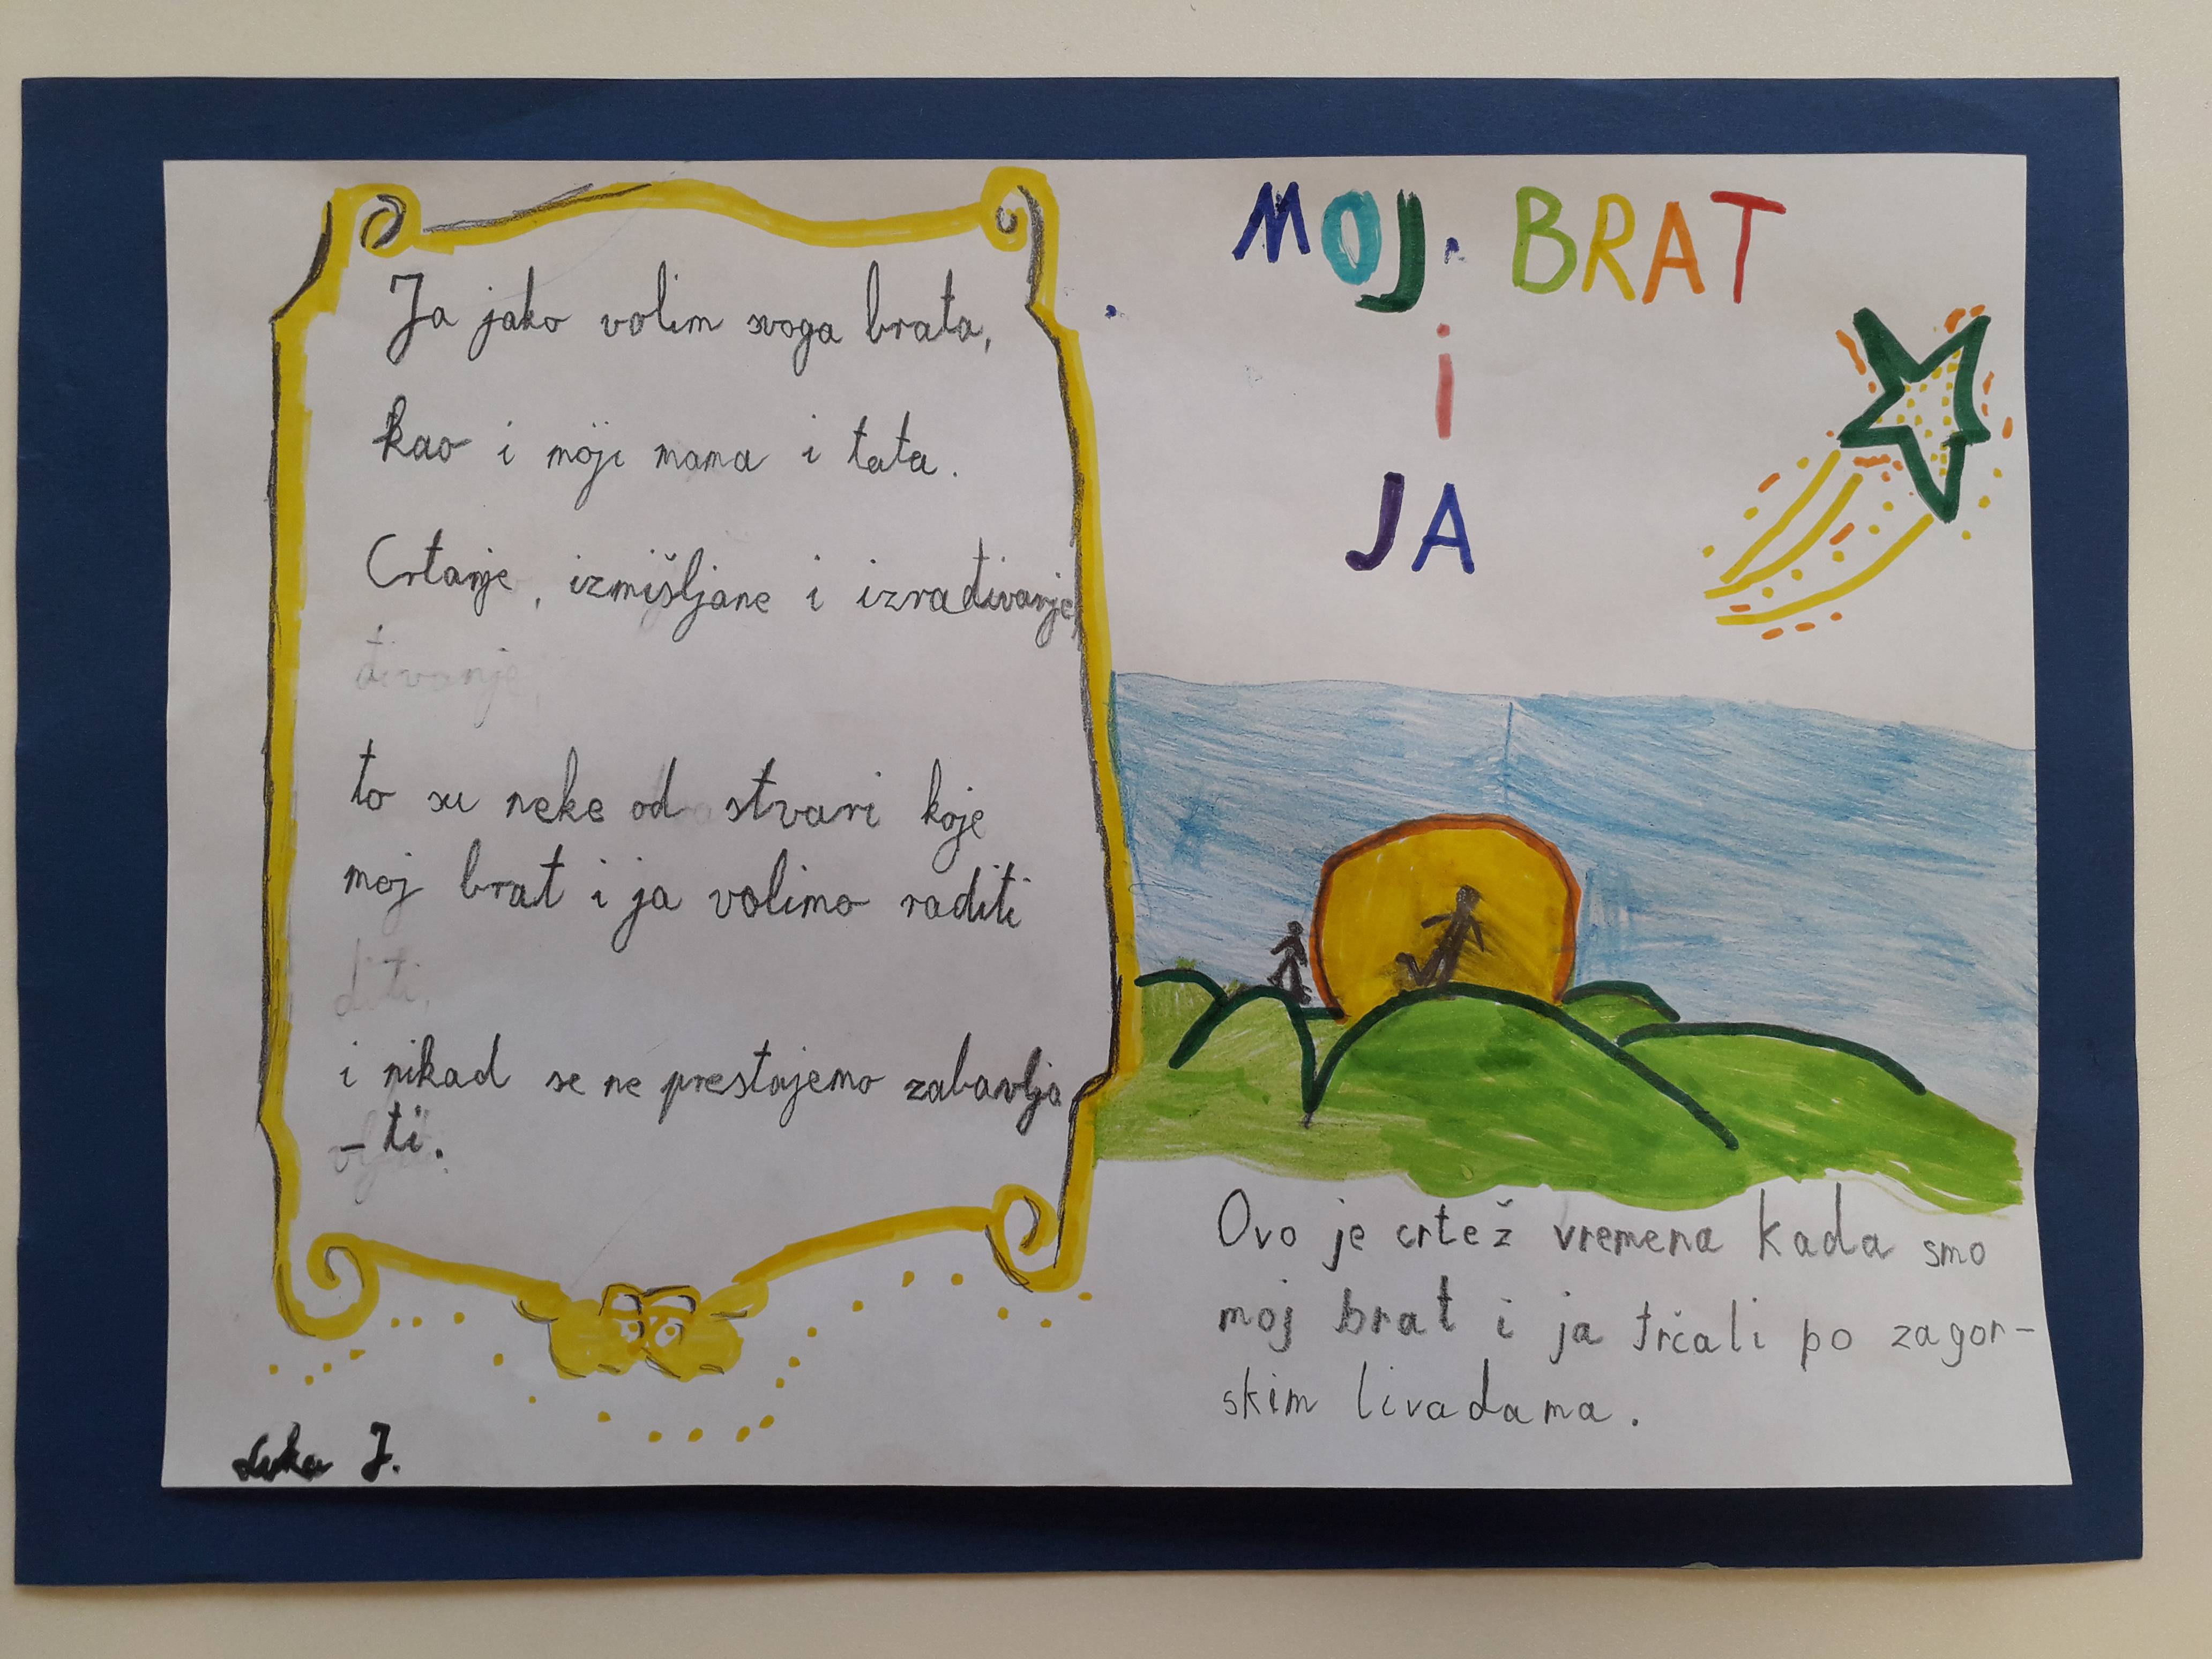 Ja jako volim svoga brata,
kao i moji mama i tata.
Crtanje, izmišljane i izrađivanje
đivanje,
to su neke od stvari koje
moj brat i ja volimo raditi
diti,
i nikad se ne prestajemo zabavlja
-ti.
Luka J.
MOJ BRAT
i
JA
Ovo je crtež vremena kada smo
moj brat i ja trčali po zagor-
skim livadama.